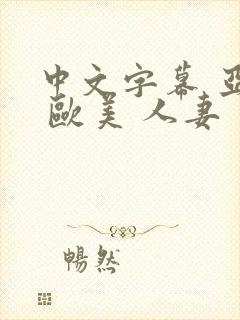 中文字幕 亞
歐美 人妻
暢然